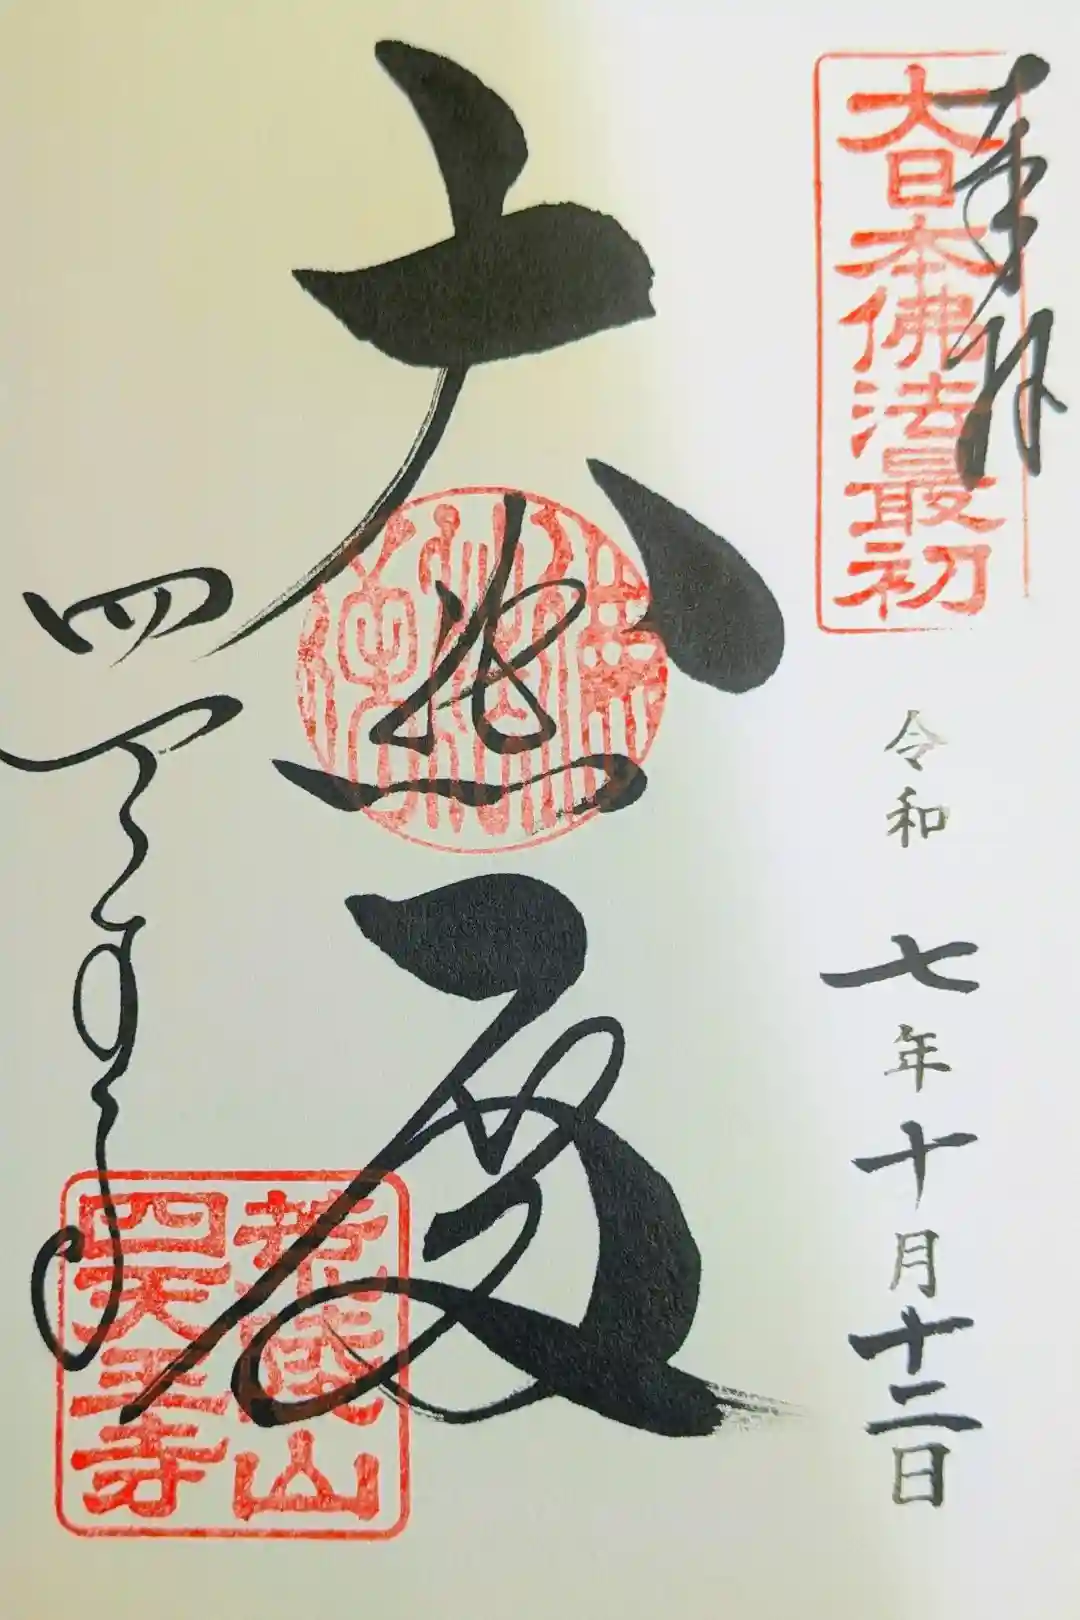 奉拝
大日本佛法最初
令和 七年十月十二日
六
殿
四天王寺
荒陵山
四天王寺